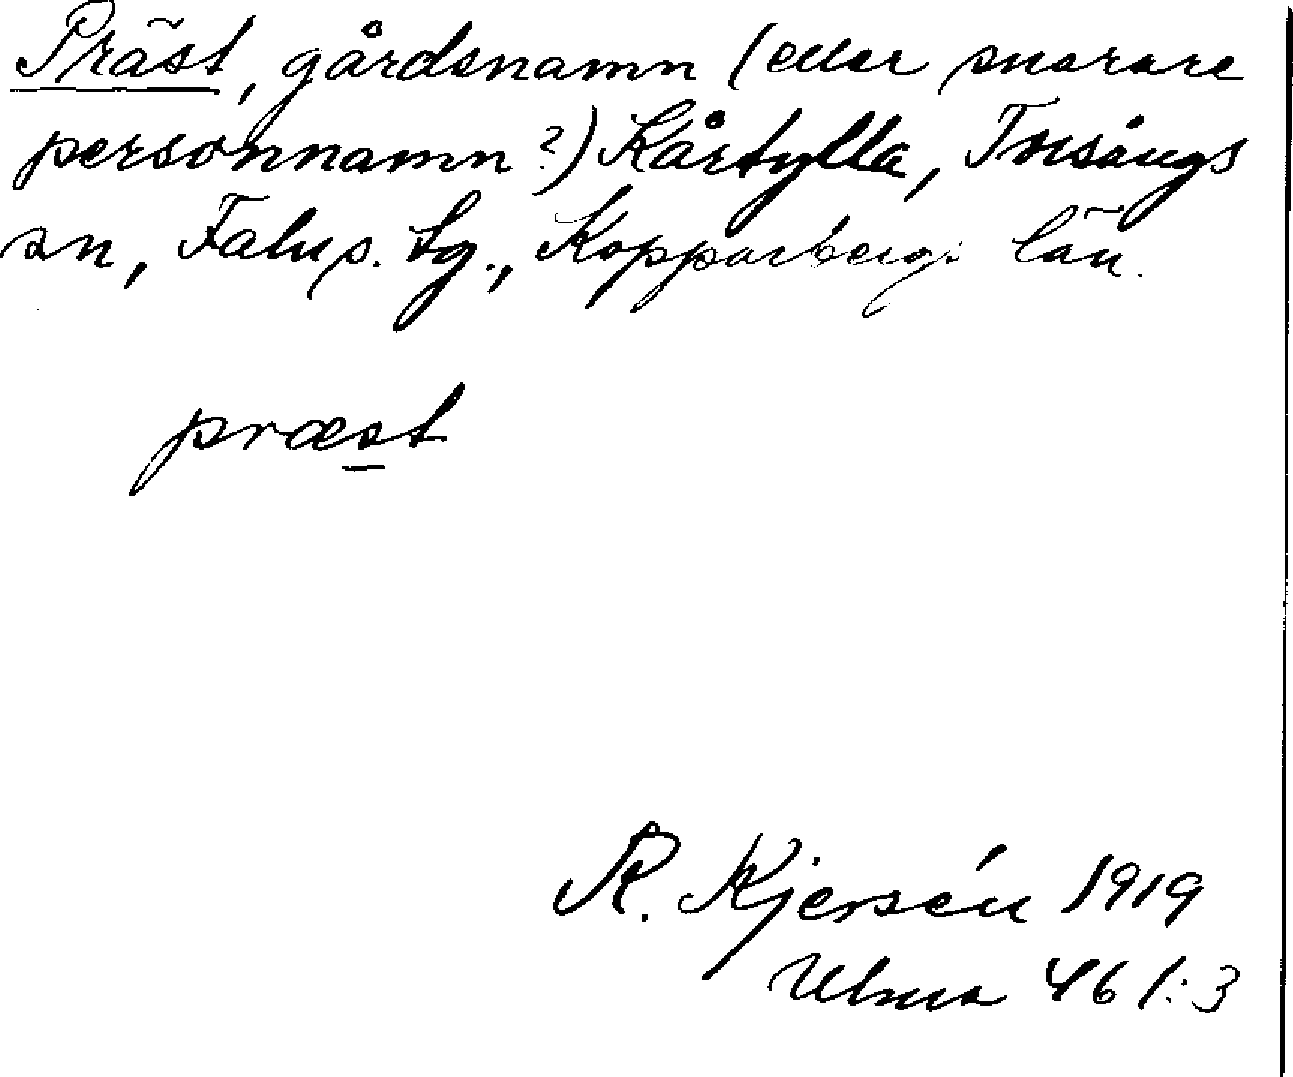 Präst, gårdsnamn (eller snarare
personnamn?) Kårtylla, Torsångs
sn, Falu s. tg., Kopparbergs län.
præst
R. Kjersén 1919
Ulma 461:3